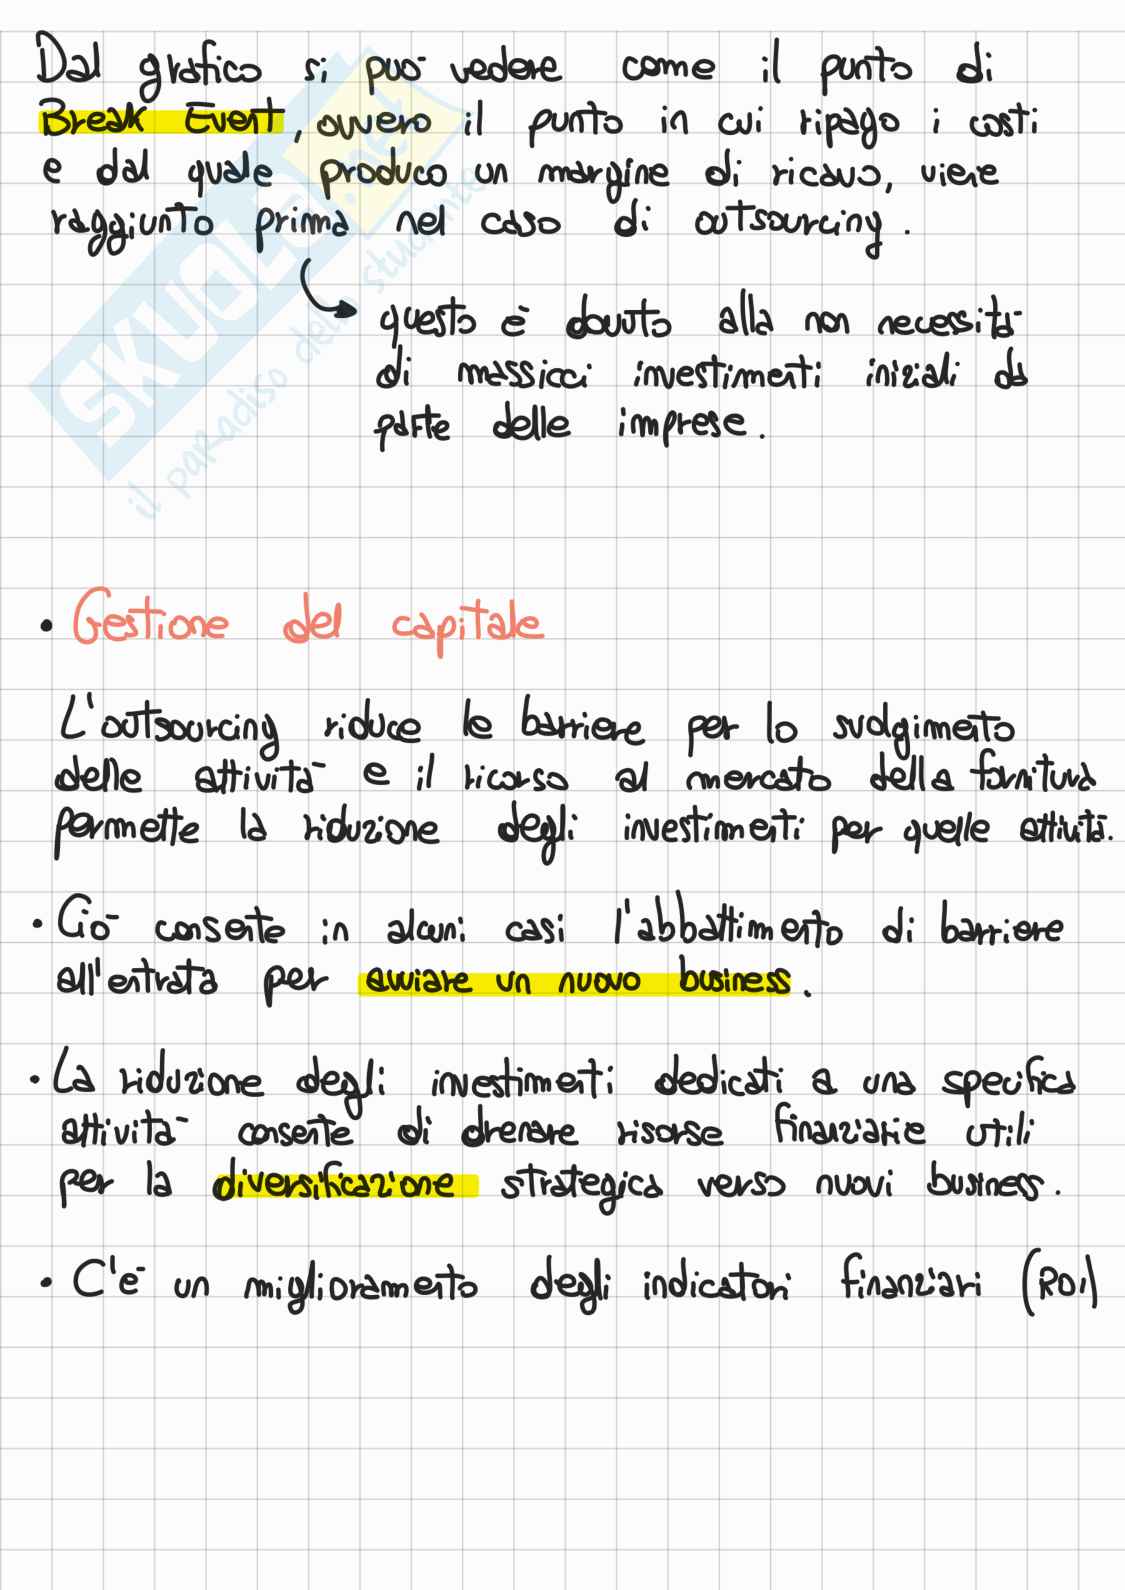 Dal grafico si può vedere come il punto di
Break Event, ovvero il punto in cui ripago i costi
e dal quale produco un margine di ricavo, viene
raggiunto prima nel caso di outsourcing.
questo è dovuto alla non necessità
di massicci investimenti iniziali da
parte delle imprese.
• Gestione del capitale
L'outsourcing riduce le barriere per lo svolgimento
delle attività e il ricorso al mercato della fornitura
permette la riduzione degli investimenti per quelle attività.
• Ciò consente in alcuni casi l'abbattimento di barriere
all'entrata per avviare un nuovo business.
• La riduzione degli investimenti dedicati a una specifica
attività consente di drenare risorse finanziarie utili
per la diversificazione strategica verso nuovi business.
• C'è un miglioramento degli indicatori finanziari (ROI)
SKUOLA.net
il paradiso dello studente